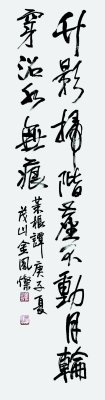 竹影掃階塵不動月輪
穿沼水無痕
菜根譚庚子夏
茂山金鳳